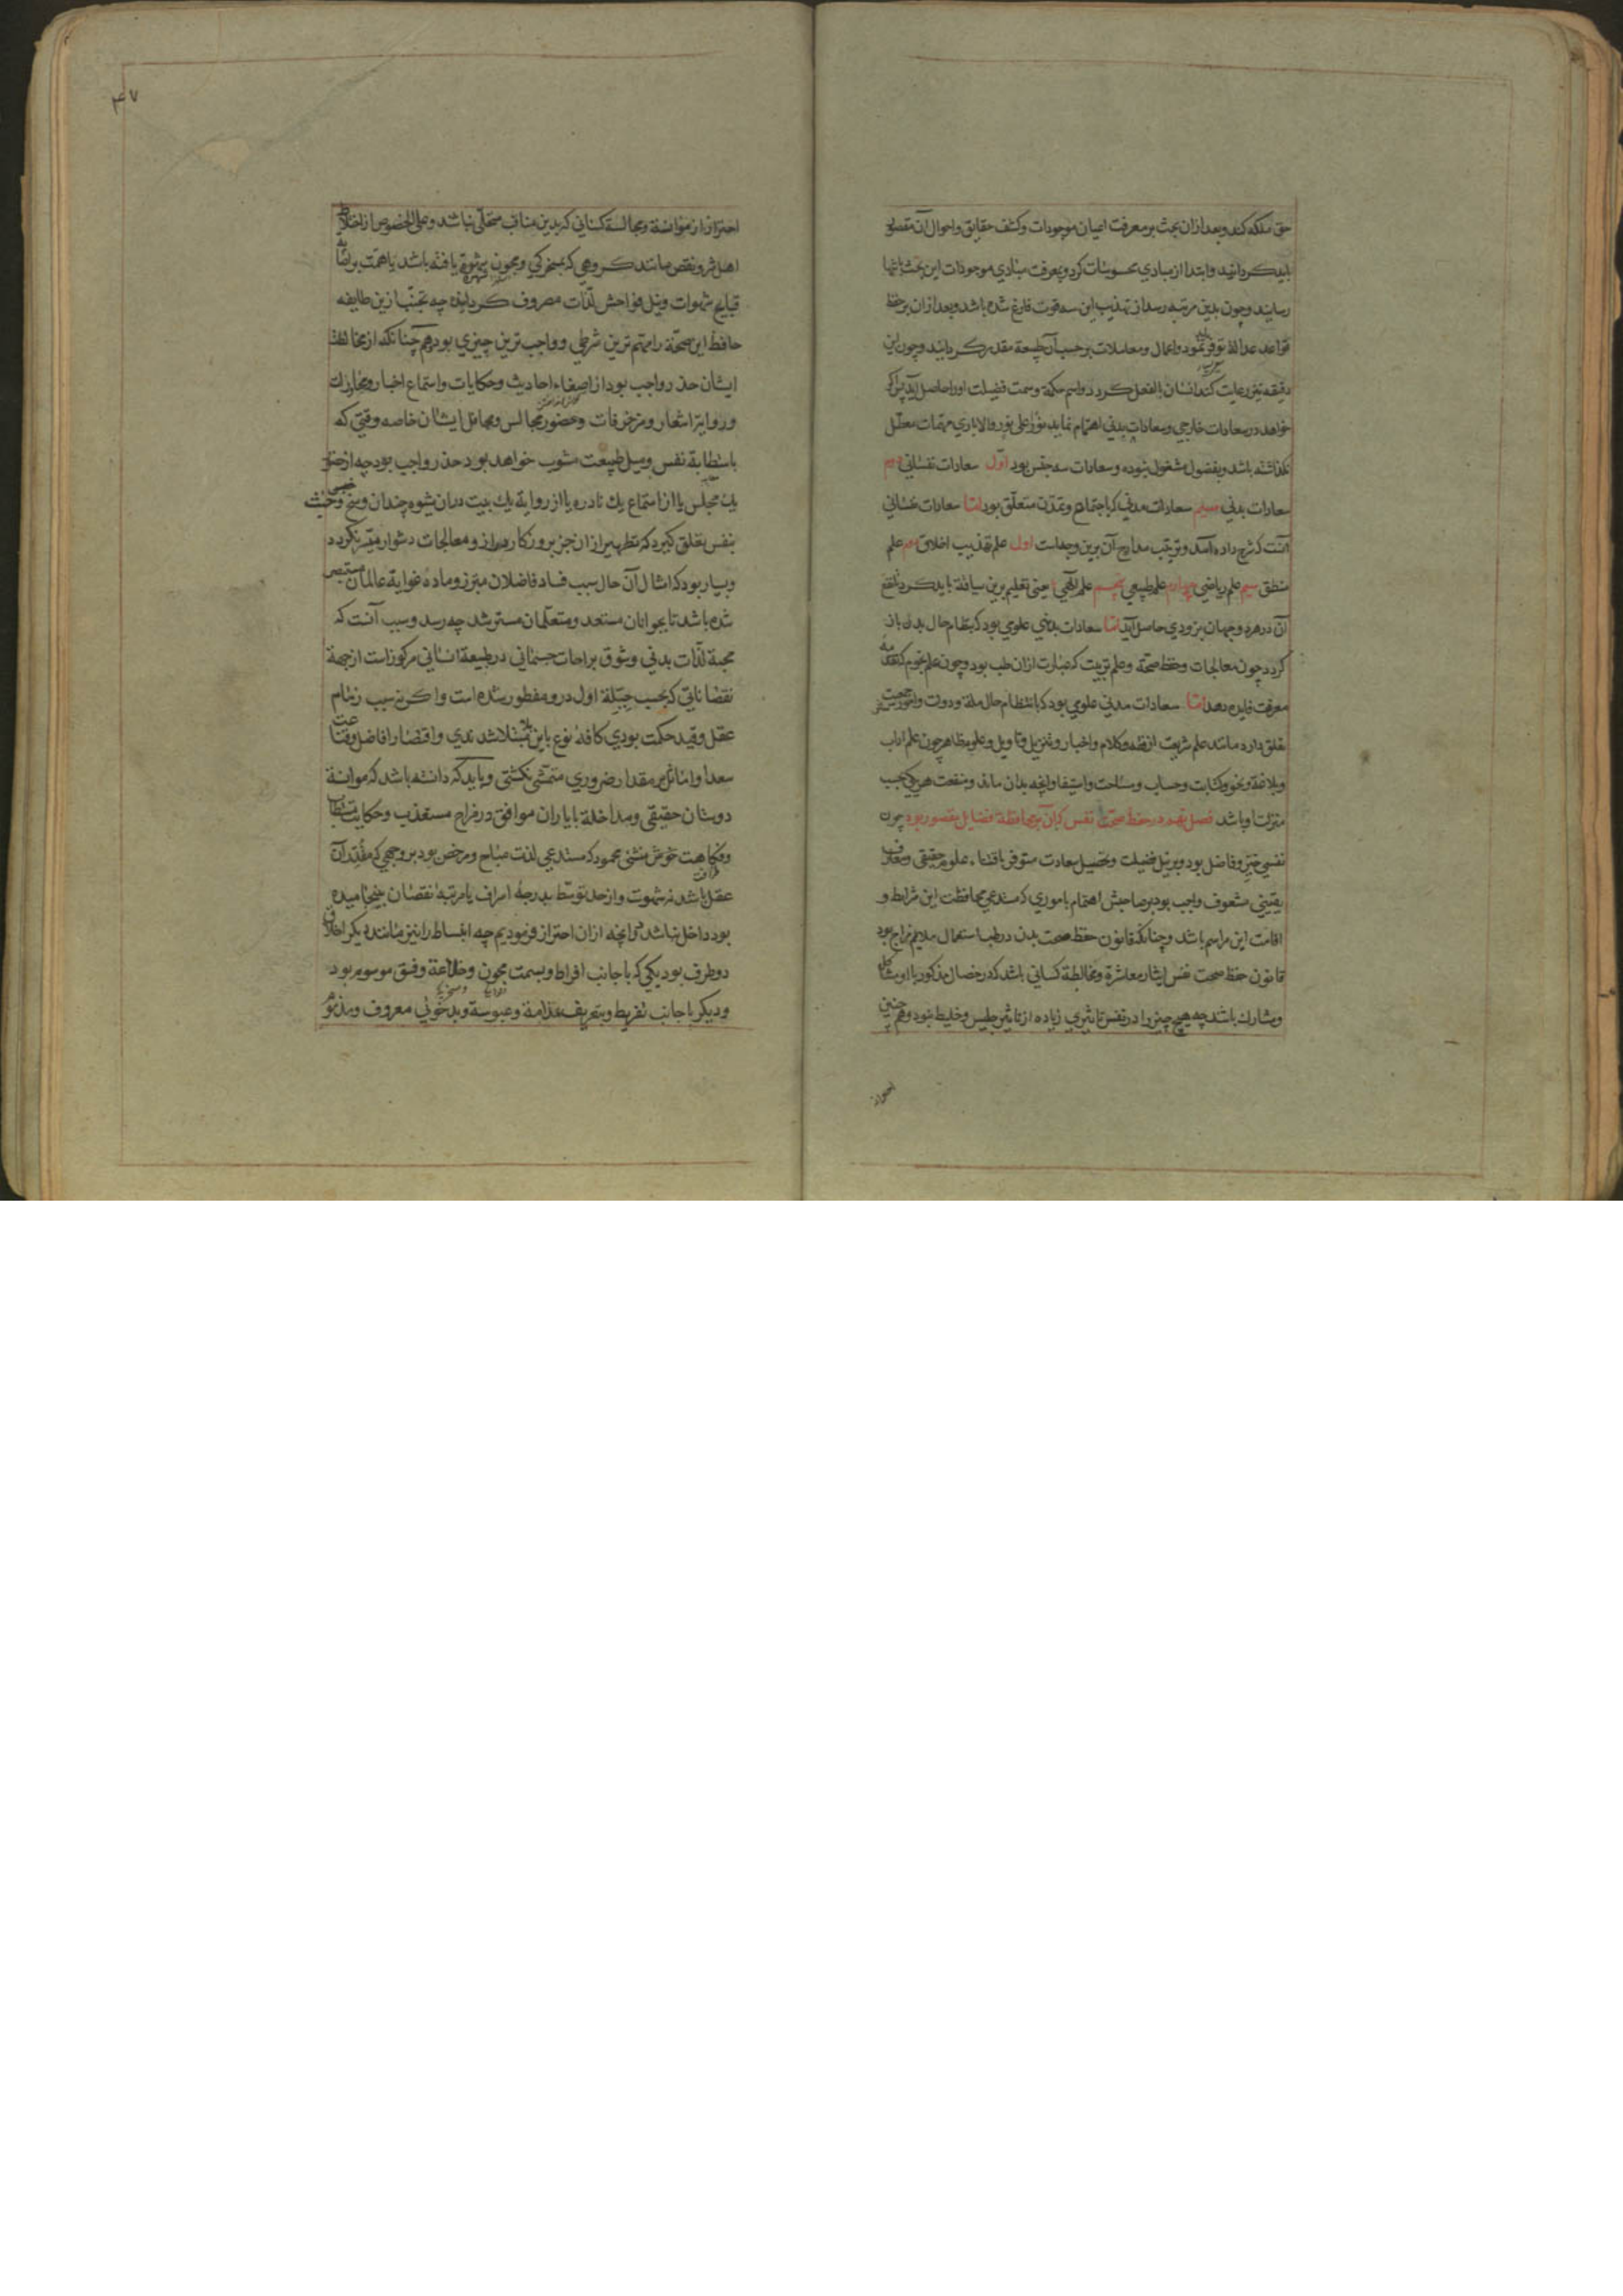 حق ملکه کند و بعد ازان بحث بر معرفت اعیان موجودات و کشف حقایق و احوال آن مقصور
باید کردانید و ابتدا از مبادی محسوسات کرد و بمعرفت مبادی موجودات این بحث بانتها
رسانید و چون بدین مرتبه رسد از تهذیب این سه قوت فارغ شده باشد و بعد ازان بر حفظ
قواعد عدالة توفر نمود و اعمال و معاملات بر حسب آن طبیعة مقدر کردانید و چون این
دقیقه نیز رعایت کند انسان بالفعل کردد و اسم حکمة و سمت فضیلت او را حاصل آید پس اکر
خواهد در سعادات خارجی و سعادات بدنی اهتمام نماید نور علی نور والا باری مهمات معطل
نکذاشته باشد و بفضول مشغول نبوده و سعادات سه جنس بود اول سعادات نفسانی دوم
سعادات بدنی سیم سعادات مدنی که باجتماع و تمدن متعلق بود اما سعادات نفسانی
آنست که شرح داده آمد و ترتیب مدارج آن برین وجه است اول علم تهذیب اخلاق دوم علم
منطق سیم علم ریاضی چهارم علم طبیعی پنجم علم الهی یعنی تعلیم برین سیاقة باید کرد تا نفع
آن در هر دو جهان بزودی حاصل آید اما سعادات بدنی علومی بود که بنظام حال بدن باز
کردد چون معالجات و حفظ صحة و علم زینت که عبارت ازان طب بود و چون علم نجوم که تقدمه
معرفت فایده دهد اما سعادات مدنی علومی بود که بانتظام حال ملة و دولت و امور معیشت
تعلق دارد مانند علم شریعت از فقه و کلام و اخبار و تنزیل و تاویل و علوم ظاهر چون علم اداب
و بلاغة و نحو و کتابت و حساب و مساحت و استیفا و انچه بدان ماند و منفعت هر یکی بحسب
منزلت او باشد فصل نهم در حفظ صحت نفس که آن بر محافظة فضایل مقصور بود چون
نفس خیر و فاضل بود و بر نیل فضیلت و تحصیل سعادت متوفر باقتناء علوم حقیقی و معارف
یقینی مشعوف واجب بود بر صاحبش اهتمام باموری که مستدعی محافظت این شرایط و
اقامت این مراسم باشد و چنانکه قانون حفظ صحت بدن در طب استعمال ملایم مزاج بود
قانون حفظ صحت نفس ایثار معاشرة و مخالطة کسانی باشد که در خصال مذکور با او مشاکل
و مشارک باشند چه هیچ چیز را در نفس تاثیری زیاده از تاثیر جلیس و خلیط نبود و هم چنین
احتراز
۴۷
احتراز از موانسة و مجالسة کسانی که بدین مناقب متحلی نباشند و علی الخصوص از اختلاط
اهل شر و نقص مانند کروهی که بمسخرکی و مجون شهرة یافته باشند یا همت بر اصابة
قبایح شهوات و نیل فواحش لذات مصروف کردانیده چه تجنب ازین طایفه
حافظ این صحة را مهم ترین شرطی و واجب ترین چیزی بود و هم چنانکه از مخالطة
ایشان حذر واجب بود از اصغاء احادیث و حکایات و استماع اخبار و مجارات
و روایة اشعار و مزخرفات و حضور مجالس و محافل ایشان خاصه وقتی که
باستطابة نفس و میل طبیعت مشوب خواهد بود حذر واجب بود چه از حضور
یک مجلس یا از استماع یک نادره یا از روایة یک بیت دران شیوه چندان وسخ و خبث
بنفس تعلق کیرد که تطهیر ازان جز بروزکار دراز و معالجات دشوار میسر نکردد
و بسیار بود که امثال آن حال سبب فساد فاضلان مبرز و ماده غوایة عالمان مستبصر
شده باشد تا بجوانان مستعد و متعلمان مسترشد چه رسد و سبب آنست که
محبة لذات بدنی و شوق براحات جسمانی در طبیعة انسانی مرکوز است از جهة
نقصاناتی که بحسب جبلة اول درو مفطور شده است و اکر نه سبب زمام
عقل و قید حکمت بودی کافه نوع باین بلا مبتلا شدندی و اقتصار افاضل و قناعت
سعدا و اماثل بر مقدار ضروری متمشی نکشتی و باید که دانسته باشد که موانسة
دوستان حقیقی و مداخلة با یاران موافق در مزاح مستعذب و حکایت مستطاب
و فکاهت خوش منشی محمود که مستدعی لذت مباح و مرخص بود بر وجهی که مقدر آن
عقل باشد نه شهوت و از حد توسط بدرجة اسراف یا مرتبة نقصان نینجامیده
بود داخل نباشد در انچه ازان احتراز فرمودیم چه انبساط را نیز مانند دیکر اخلاق
دو طرف بود یکی که با جانب افراط و بسمت مجون و خلاعة و فسق موسوم بود
و دیکر با جانب تفریط و بتعریف فدامة و عبوسة و بدخوئی معروف و مذموم